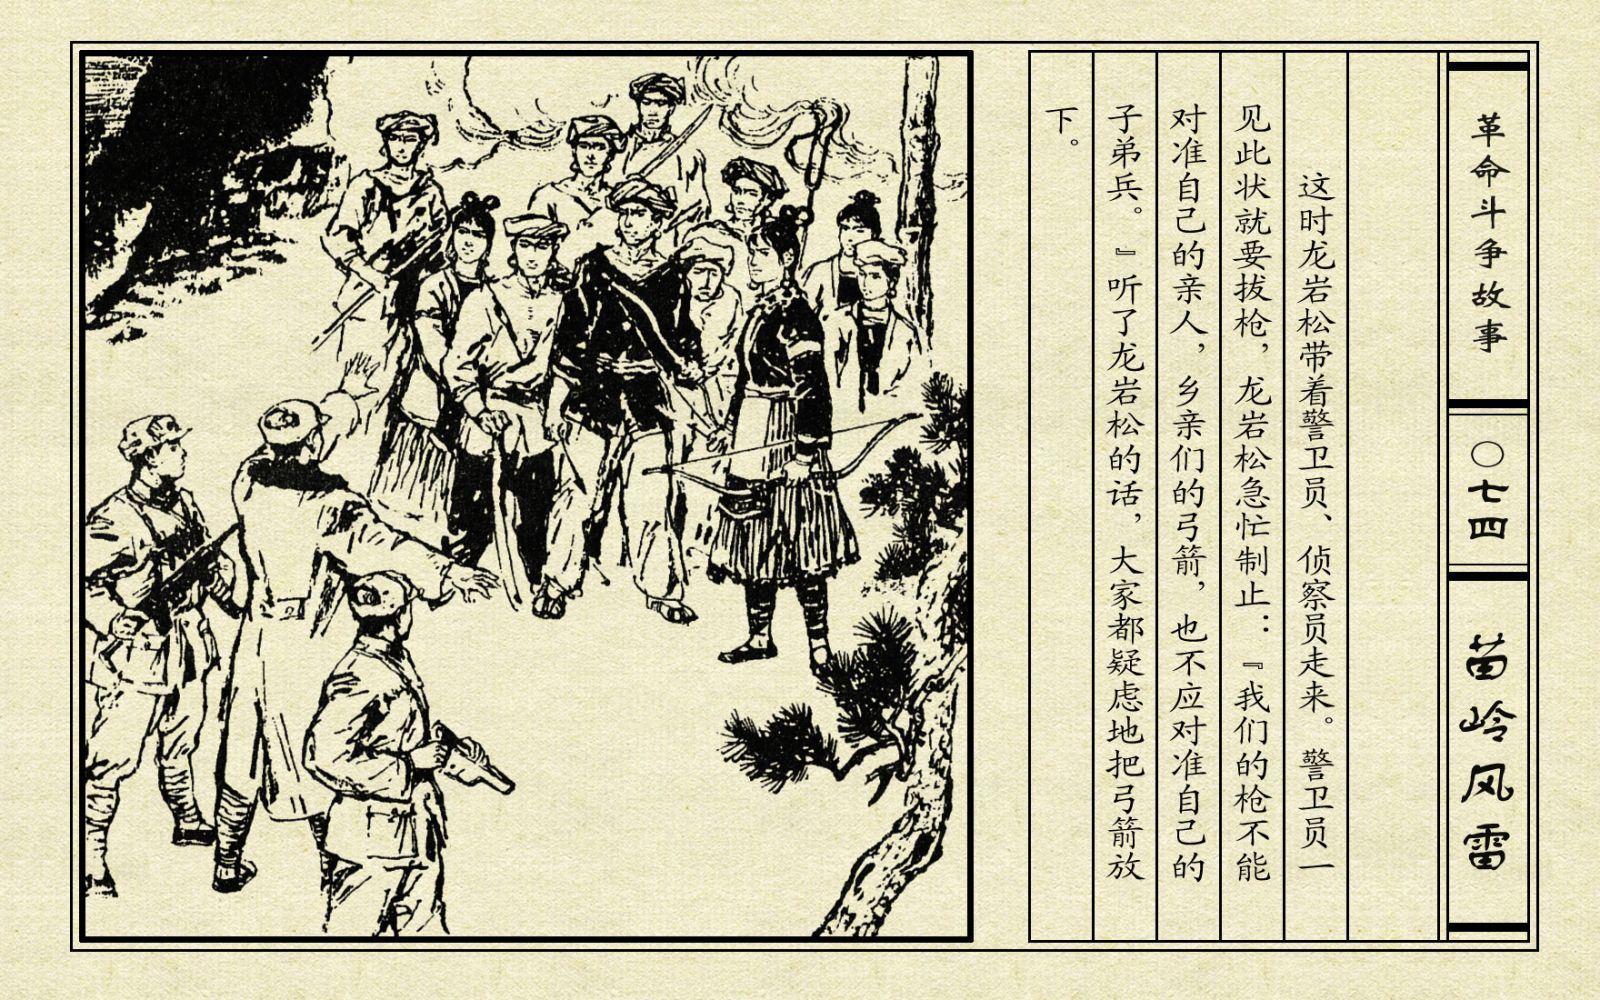 革命斗争故事
〇七四
苗岭风雷
这时龙岩松带着警卫员、侦察员走来。警卫员一
见此状就要拔枪，龙岩松急忙制止：『我们的枪不能
对准自己的亲人，乡亲们的弓箭，也不应对准自己的
子弟兵。』听了龙岩松的话，大家都疑虑地把弓箭放
下。